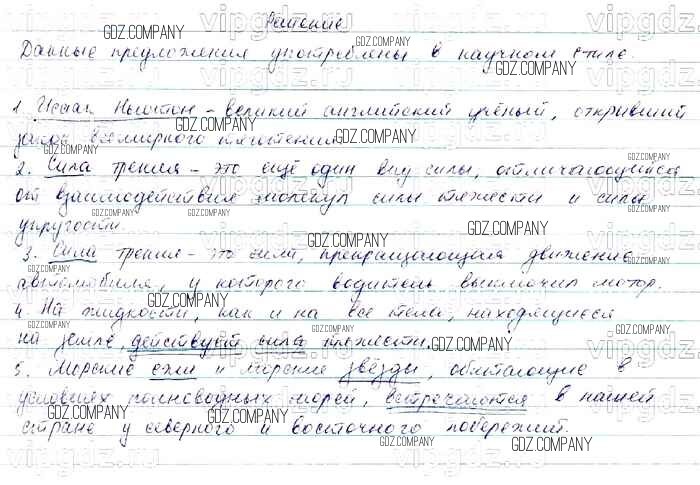 Решение
Данные предложения употреблены в научном стиле.
1. Исаак Ньютон - великий английский учёный, открывший
закон всемирного тяготения.
2. Сила трения - это ещё один вид силы, отличающийся
от взаимодействия молекул силы тяжести и силы
упругости.
3. Сила трения - это сила, прекращающая движение
автомобиля, у которого водитель выключил мотор.
4. На жидкости, как и на все тела, находящиеся
на земле, действует сила тяжести.
5. Морские ежи и морские звёзды, обитающие в
условиях полноводных морей, встречаются в нашей
стране у северного и восточного побережий.